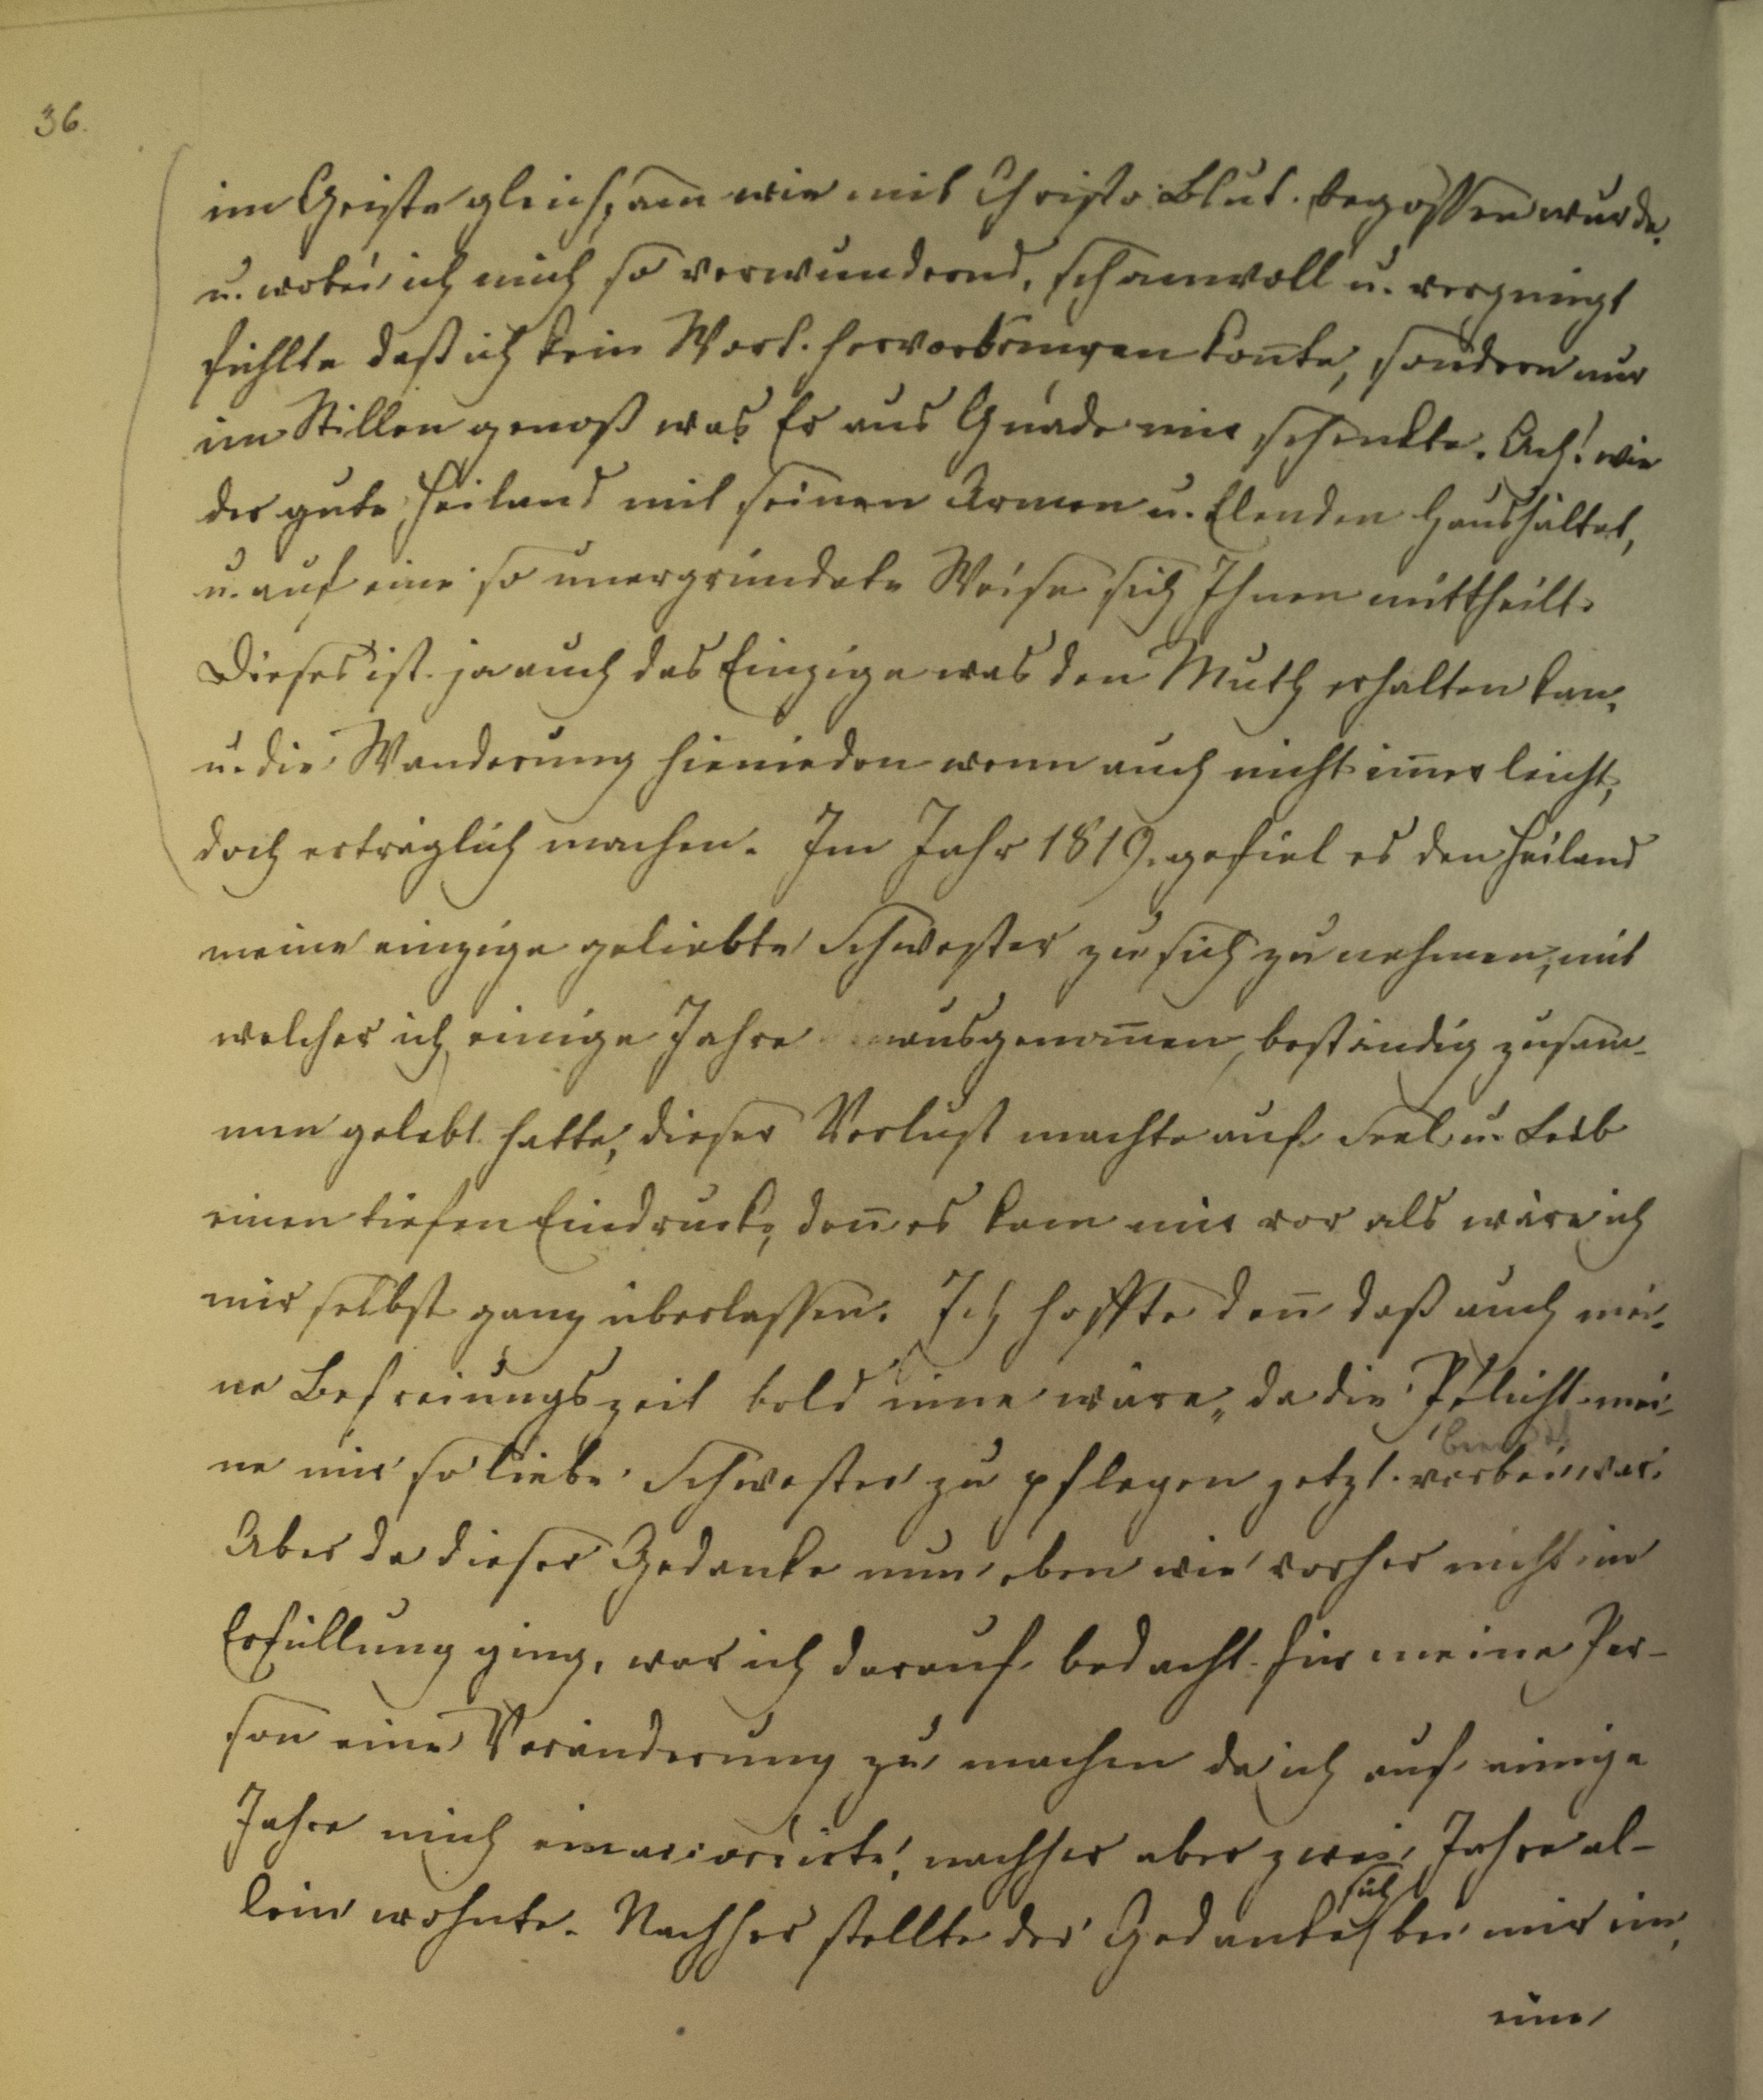 36.
im Geiste gleichsam wie mit Christo Blut begossen wurde,
u. wobei ich mich so verwundernd, schamvoll u. vergnügt
fühlte daß ich kein Wort hervorbringen kon̅te, sondern nur
im Stillen genoß was Er aus Gnade mir schenkte. Ach! wie
der gute Heiland mit seinen Armen u. Elenden Haushältet,
u. auf eine so unergründete Weise sich Ihnen mittheilt.
Dieses ist ja auch das Einzige was den Muth erhalten kan,
u. die Wanderung hienieden wenn auch nicht im̅er leicht,
doch erträglich machen. Im Jahr 1819. gefiel es den Heiland
meine einzige geliebte Schwester zu sich zu nehmen, mit
welcher ich einige Jahre ausgenom̅en, beständig zusam-
men gelebt hatte, dieser Verlust machte auf Seel u. Leib
einen tiefen Eindruck, den̅ es kam mir vor als wäre ich
mir selbst ganz überlassen. Ich hoffte den̅ daß auch mei-
ne Befreiungszeit bald eine wäre, da die Pflicht mei-
ne mir so liebe Schwester zu pflegen jetzt vorbei war.
Aber da dieser Gedanke nun eben wie vorher nicht in
Erfüllung ging, war ich darauf bedacht für meine Per-
son eine Veränderung zu machen da ich auf einige
Jahre mich nachher aber zwei Jahre al-
lein wohnte. Nachher stellte der Gedanke sich bei mir ein,
eine